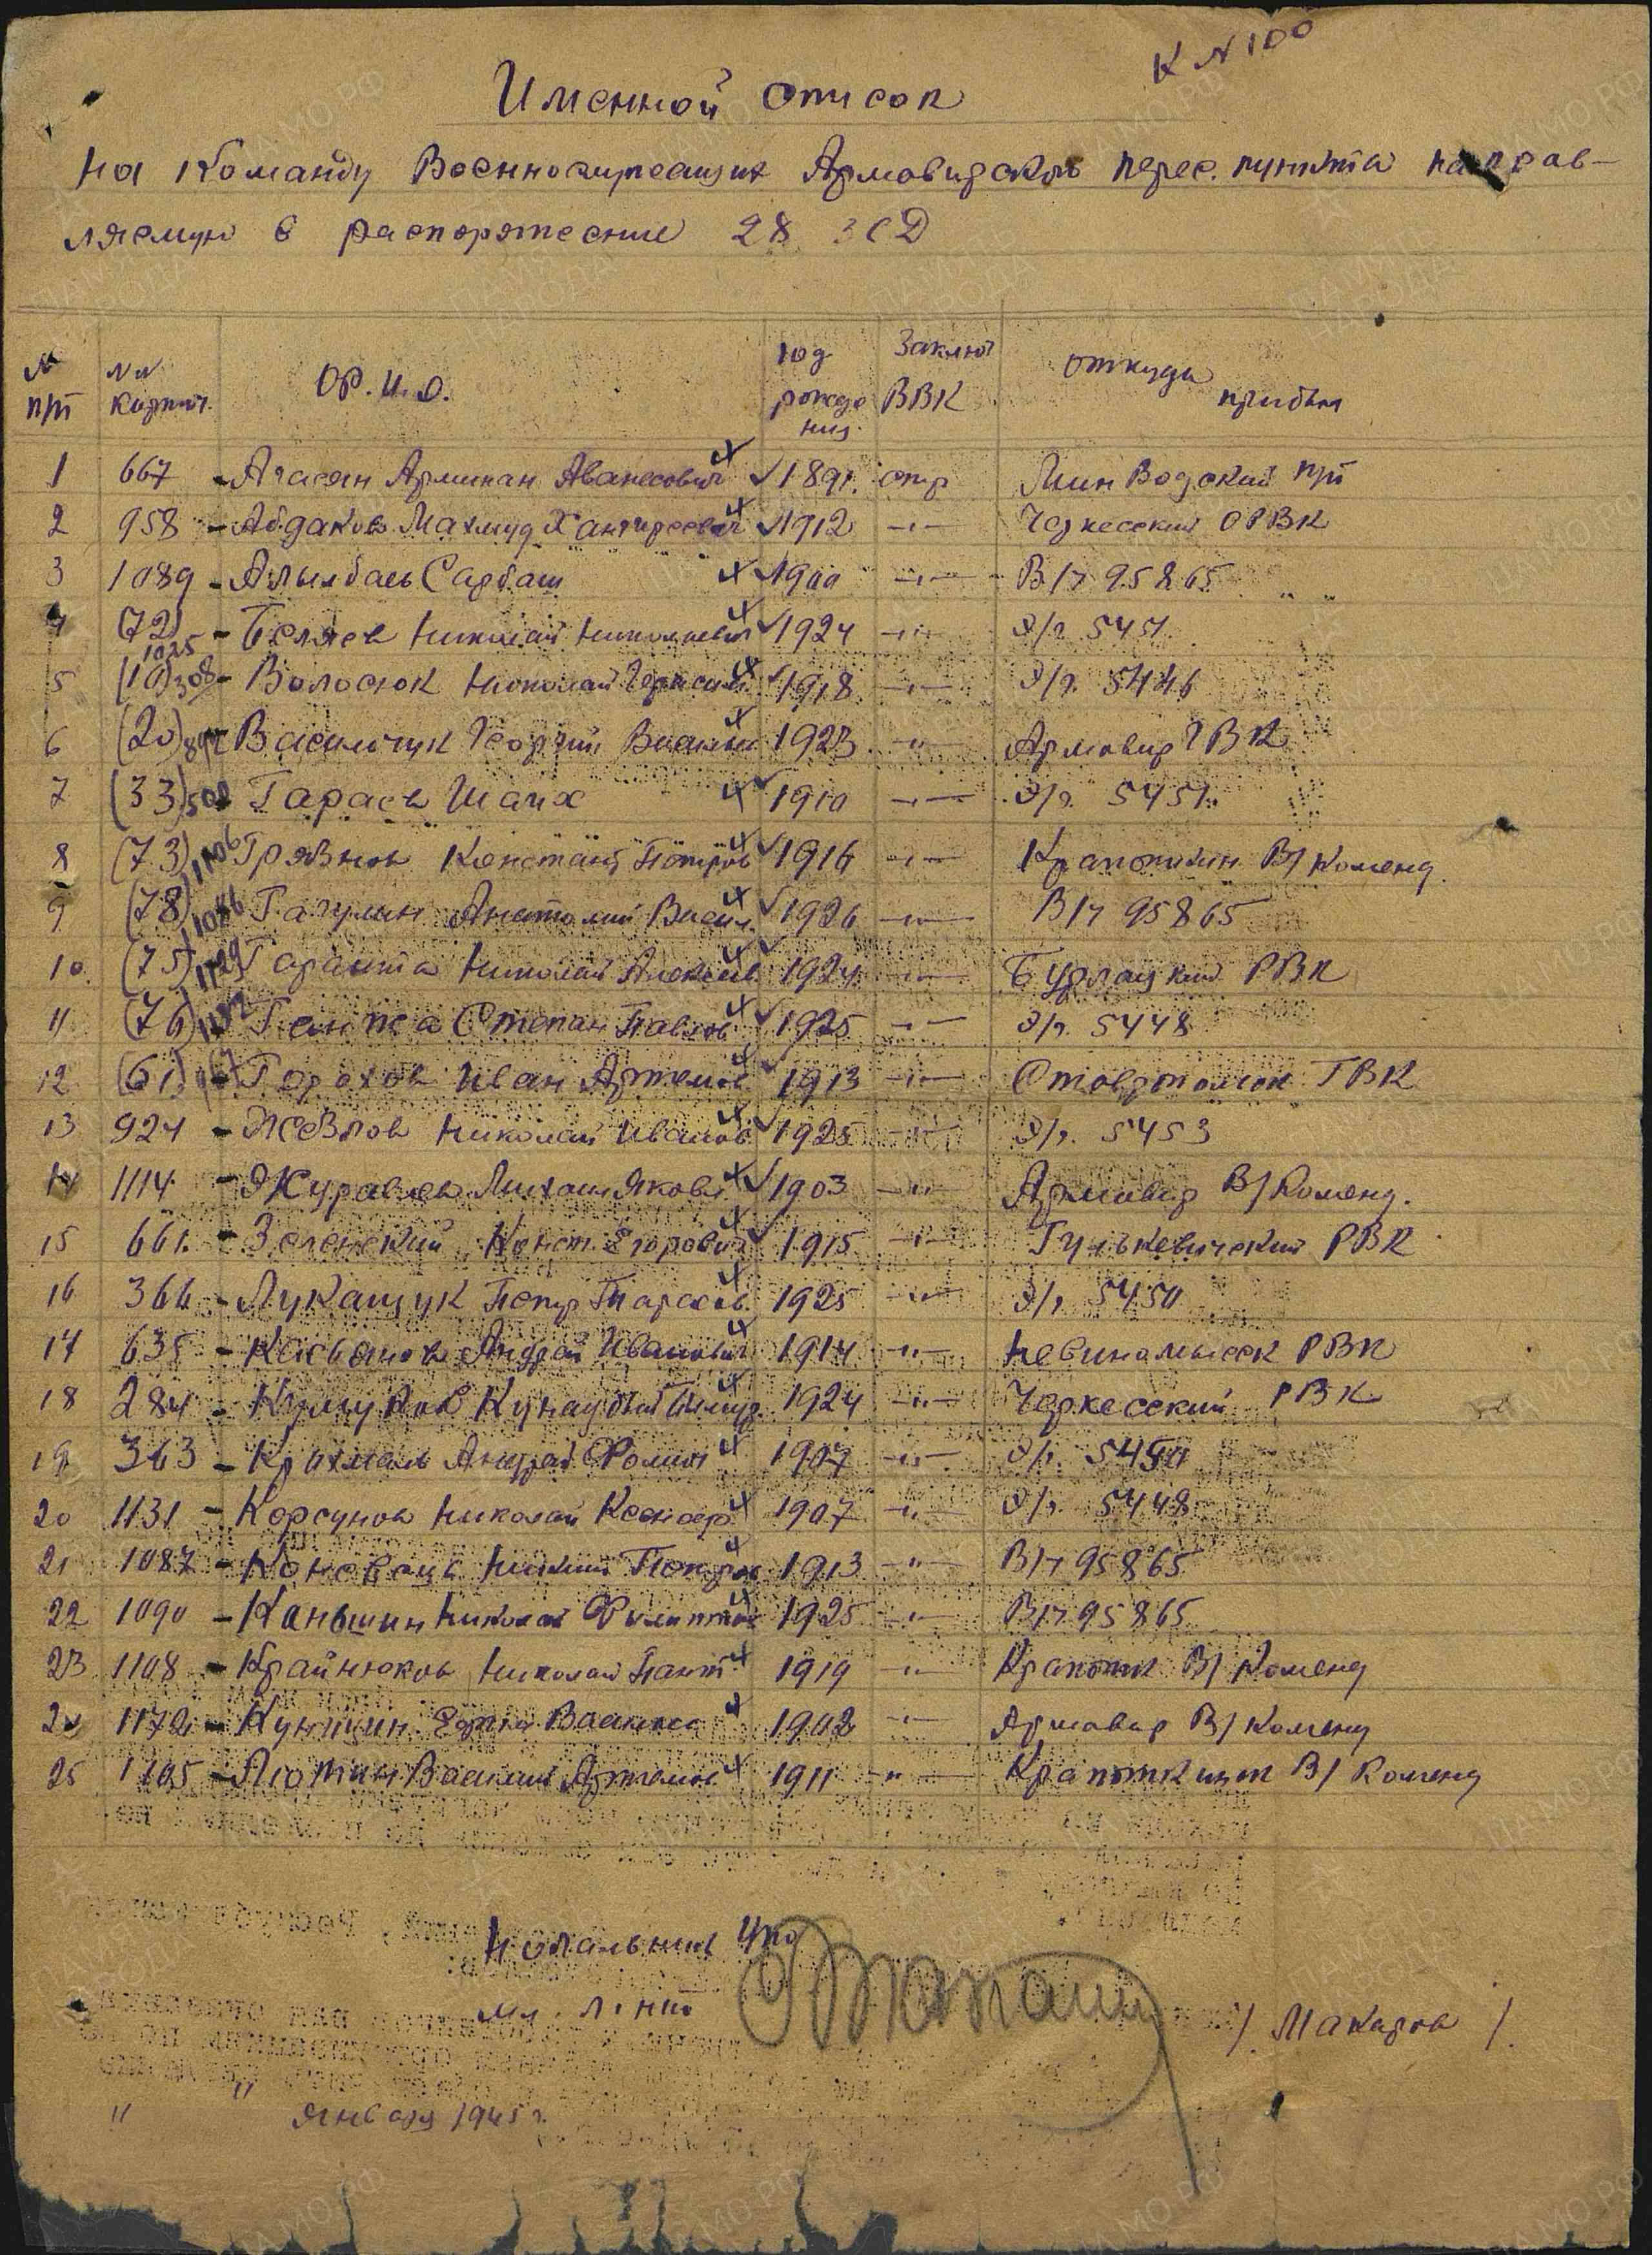 К № 100
Именной список
на команду Военнослужащих Армавирского перес. пункта направ-
ляемую в распоряжение 28 ЗСД
№ п/п №№ карточ. Ф.И.О. год рождения Заключ ВВК откуда прибыл
1 667 Агасян Арминак Аванесович 1891. стр Мин Водский п/п
2 958 Абдаков Махмуд Хангиреевич 1912 -"- Черкесский ОРВК
3 1089 Алымбаев Сарбаш 1900 -"- В/ч 95865
4 (72) 1025 Беляев Николай Николаевич 1924 -"- Э/г. 5451
5 (10) 308 Волосюк Николай Герасим 1918 -"- Э/г. 5446
6 (20) Васильчук Георгий Василь 1923 -"- Армавир ГВК
7 (33) 500 Гараев Шаих 1910 -"- Э/г. 5451
8 (73) 1106 Грязнов Констант Петров 1916 -"- Крапоткин В/Коменд
9 (78) 1086 Гагулин Анатолий Васил. 1926 -"- В/ч 95865
10. (75) 1129 Гаранта Николай Алексеев 1924 -"- Бурлацкий РВК
11 (76) Ганжа Степан Павлов 1925 -"- Э/г. 5448
12 (61) Горохов Иван Артемов 1913 -"- Ставропольск ГВК
13 924 Жезлов Николай Иванов 1925 -"- Э/г. 5453
14 1114 Журавлев Михаил Яковл. 1903 -"- Армавир В/Коменд.
15 661. Зеленский Конст. Егорович 1915 -"- Гулькевический РВК
16 366 Лукащук Петр Тарасов. 1925 -"- Э/г. 5450
17 635 Касьянов Андрей Иванович 1914 -"- Невиномысск РВК
18 284 Кумуков 1924 -"- Черкесский РВК
19 363 Крахмаль Андрей Фомич 1907 -"- Э/г. 5450
20 1131 Корсунов Николай Ксенофр 1907 -"- Э/г. 5448
21 1087 Коновец Никит Петров 1913 -"- В/ч 95865
22 1090 Каньшин Николай Филиппов 1925 -"- В/ч 95865
23 1108 Крайнюков Николай Пант 1919 -"- Крапотк В/Коменд
24 1172 Куницин Ефим Василье 1902 -"- Армавир В/Коменд
25 1105 Лютин Василий Артемов 1911 -"- Крапоткинск В/Коменд
Начальник
мл. л-нт
/ Макаров /
" " января 1945 г.
ПАМЯТЬ НАРОДА
ПАМО.РФ